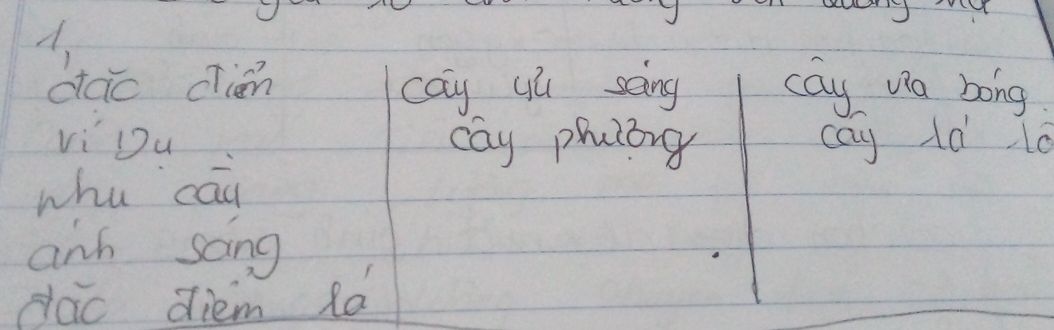 1,
đặc điểm | cây ưa sáng | cây ưa bóng
ví dụ cây phượng cây lá lố
nhu cầu
ánh sáng
đặc điểm lá